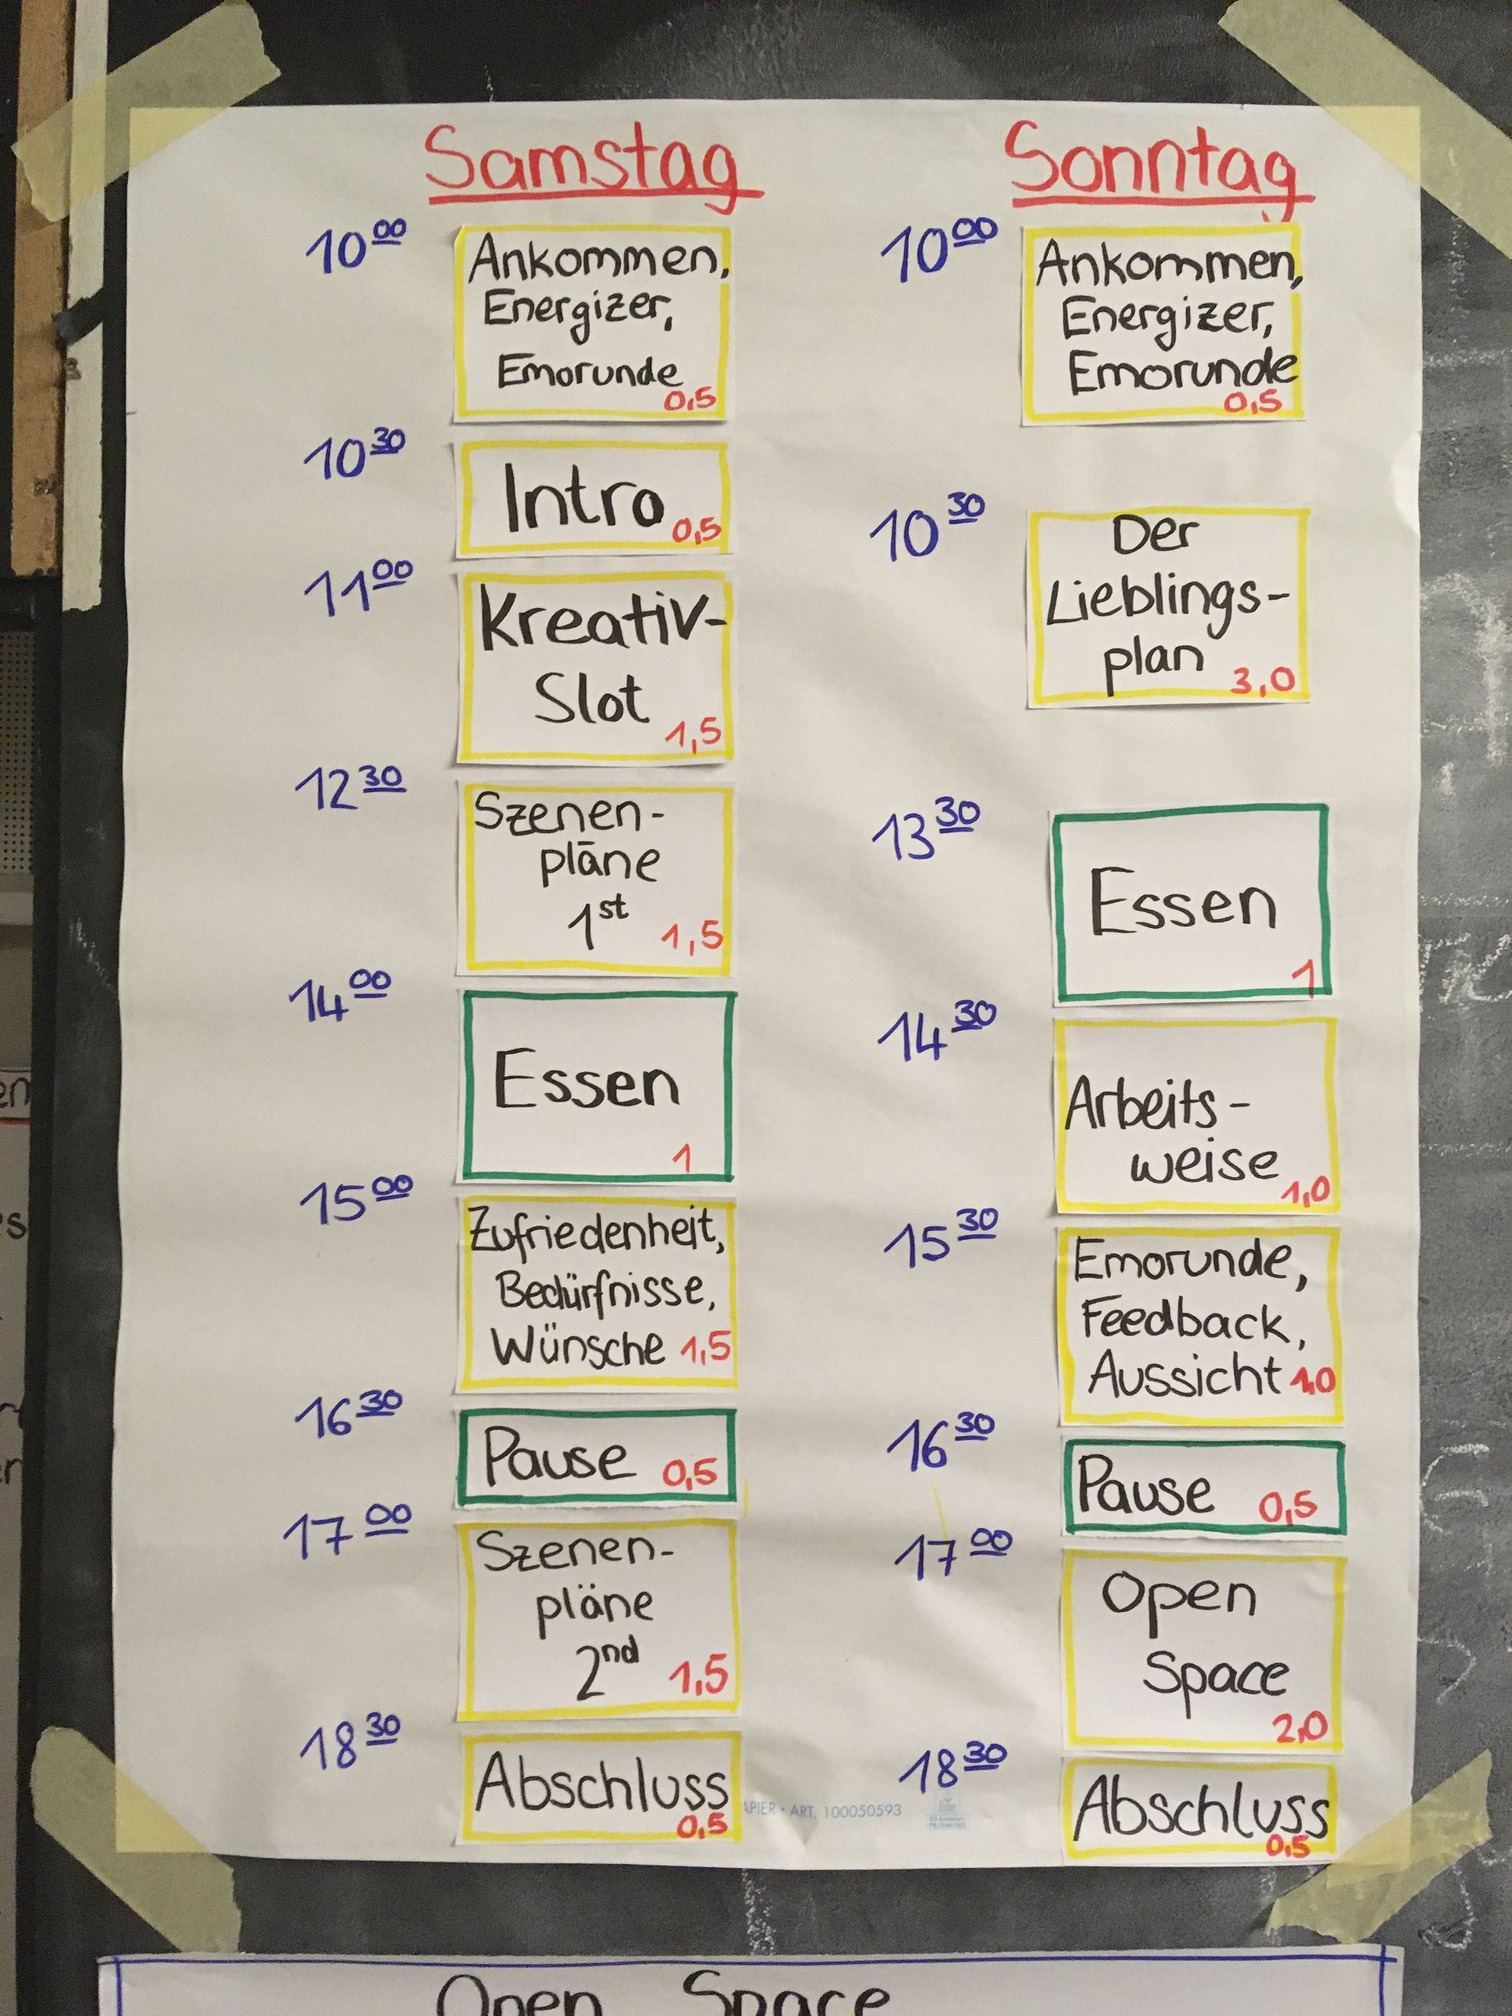 Samstag
10 00
Ankommen,
Energizer,
Emorunde
0,5
10 30
Intro 0,5
11 00
Kreativ-
Slot
1,5
12 30
Szenen-
pläne
1st 1,5
14 00
Essen
1
15 00
Zufriedenheit,
Bedürfnisse,
Wünsche 1,5
16 30
Pause 0,5
17 00
Szenen-
pläne
2nd 1,5
18 30
Abschluss
0,5
Sonntag
10 00
Ankommen,
Energizer,
Emorunde
0,5
10 30
Der
Lieblings-
plan 3,0
13 30
Essen
1
14 30
Arbeits-
weise
1,0
15 30
Emorunde,
Feedback,
Aussicht 1,0
16 30
Pause 0,5
17 00
Open
Space
2,0
18 30
Abschluss
0,5
ART. 100050593
Open Space